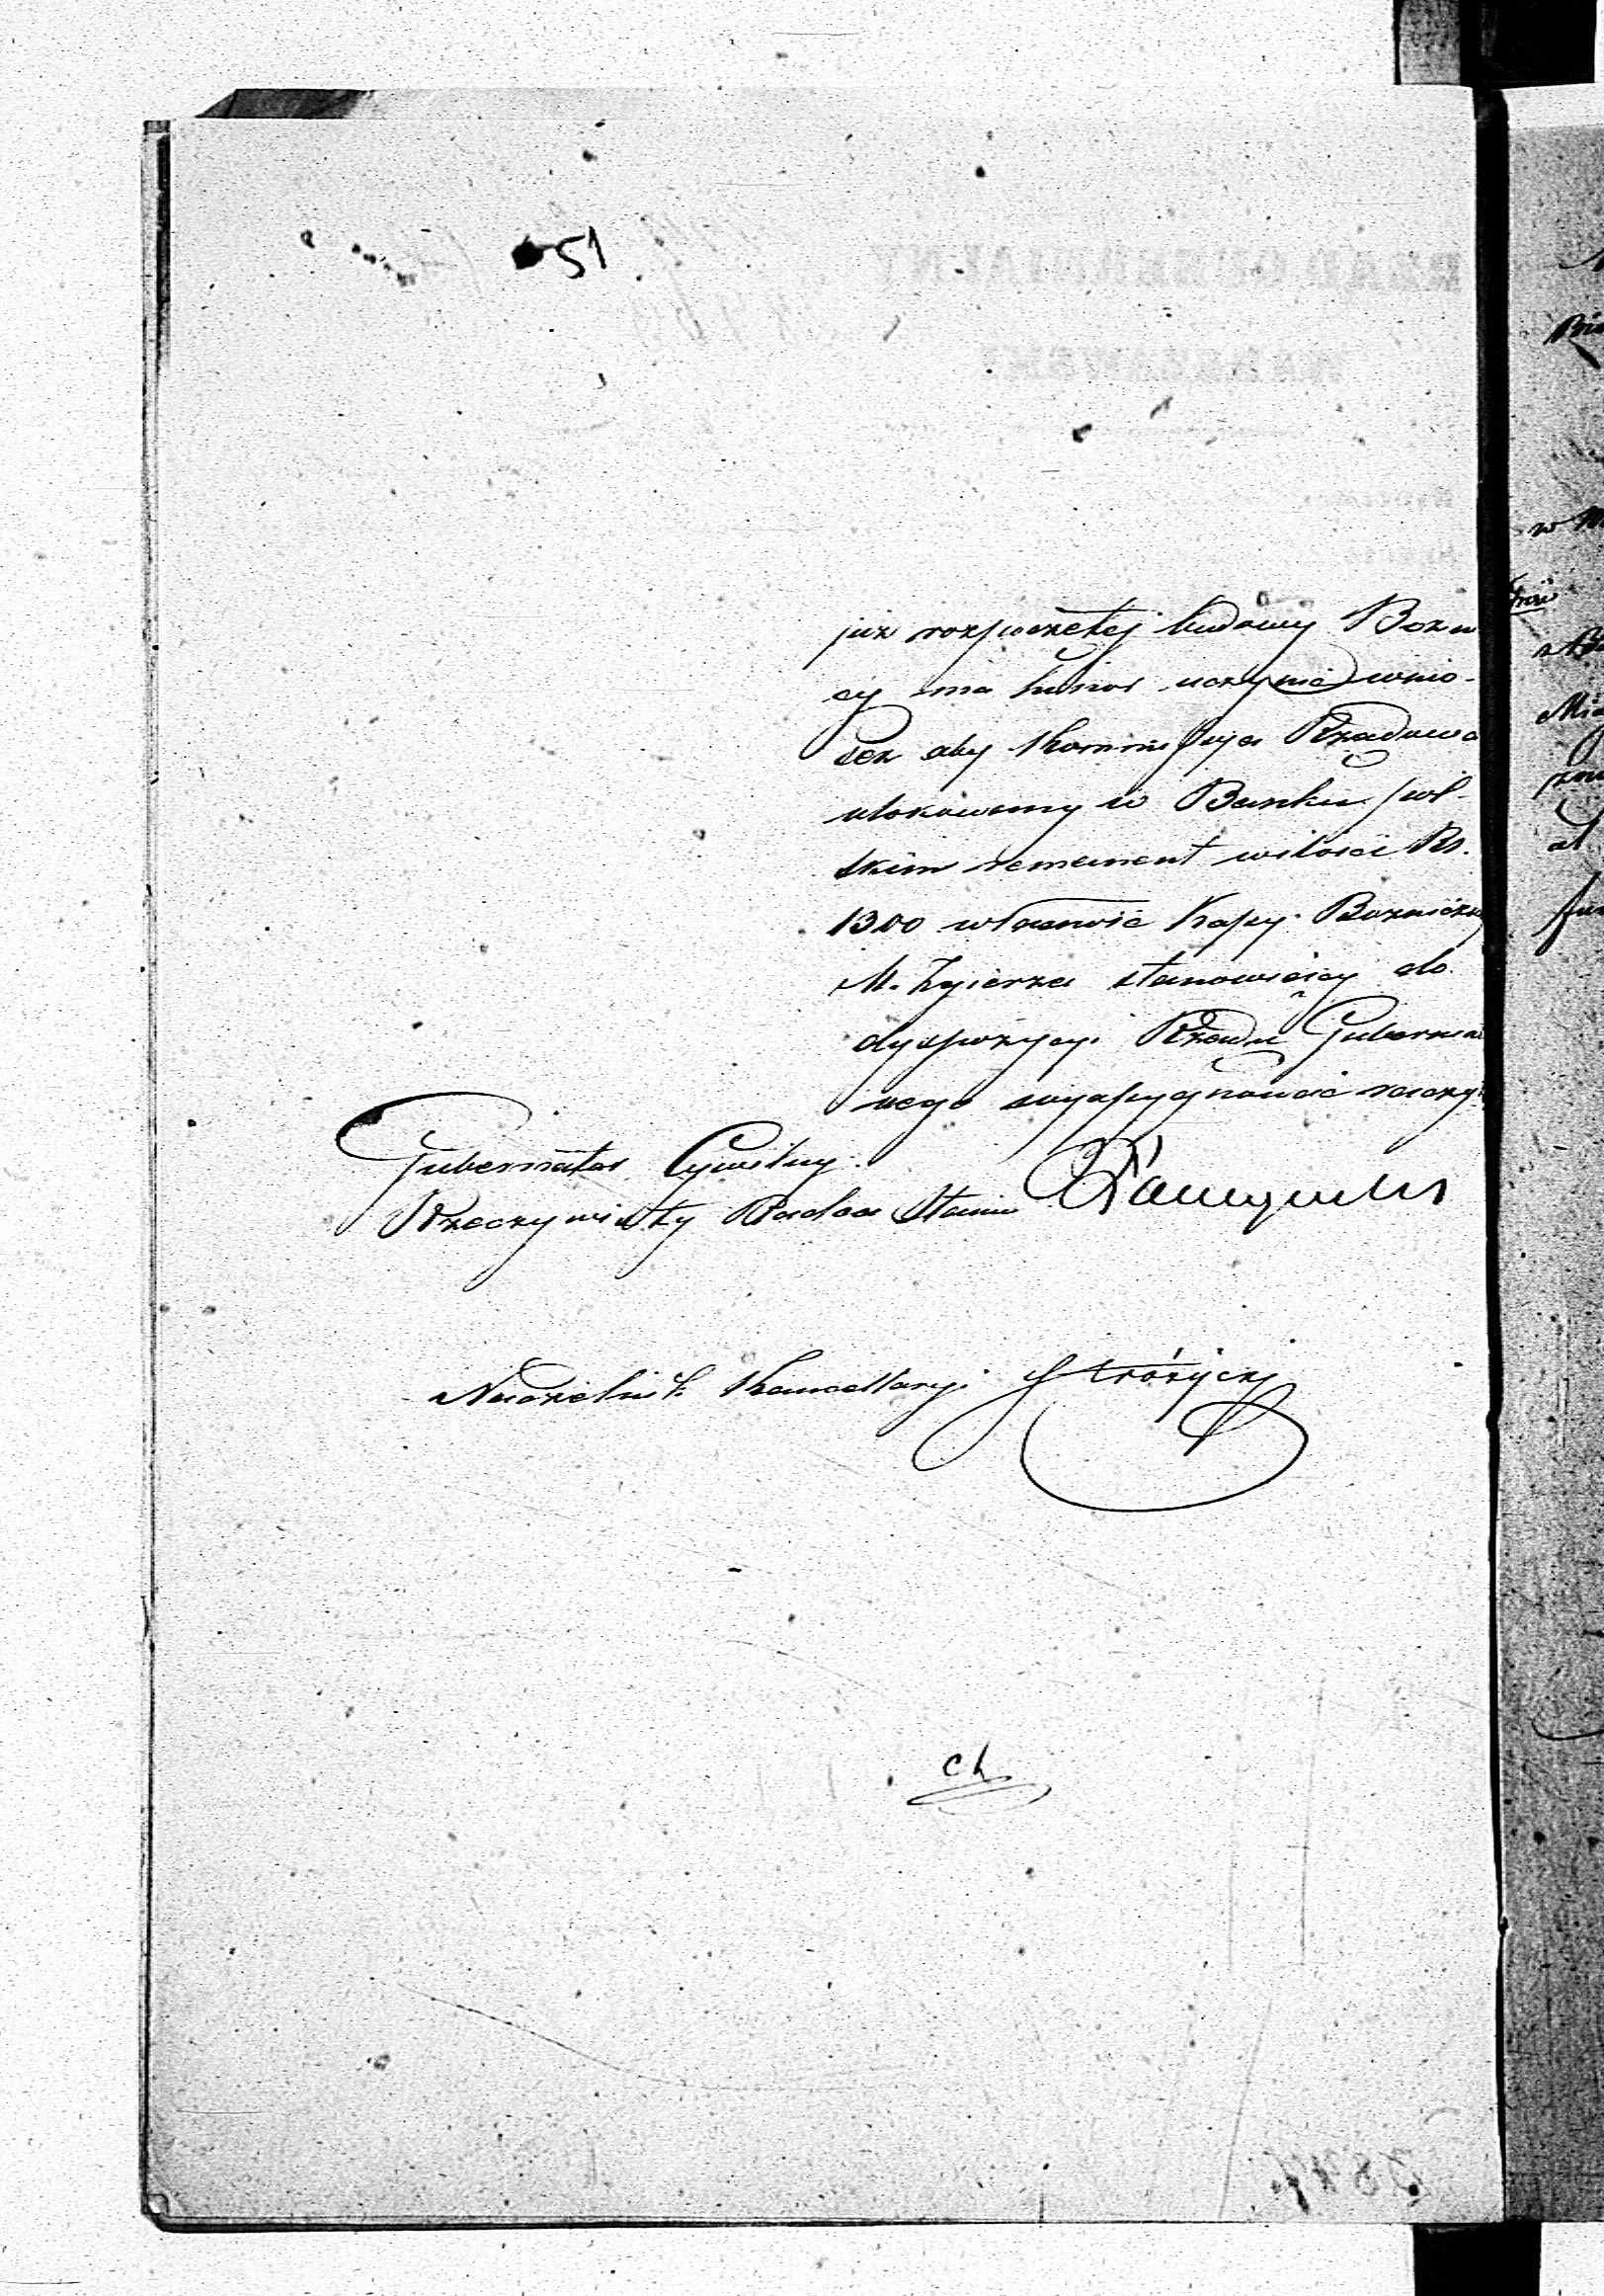 51
już rozpoczętej budowy Bożni
cy ma honor uczynić wnio-
sek aby Kommissya Rządowa
ulokowany w Banku Pol-
skim remanent w ilości Rs.
1300 własność Kassy Bożniczej
M. Zgierza stanowiący do
dyspozycyi Rządu Gubernial
nego wyassygnować raczyła
Gubernator Cywilny
Rzeczywisty Radca Stanu
Naczelnik Kancellaryi